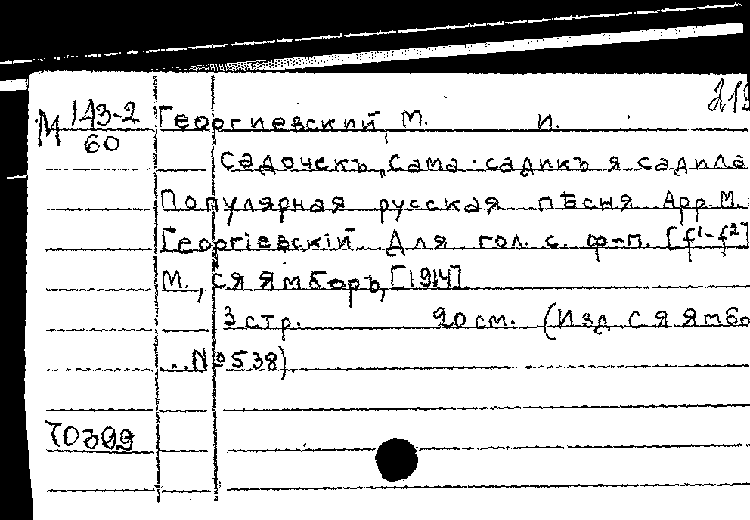 М 143-2 Георгиевский, М. И.
60
Садочекъ, Сама садикъ я садила
Популярная русская пѣсня Арр. М.
Георгіевскій. Для гол. с. ф-п. [f¹-f²]
М., С Я Ямборъ, [1914]
3 стр. 20 см. (Изд С Я Ямбо
.. № 538).